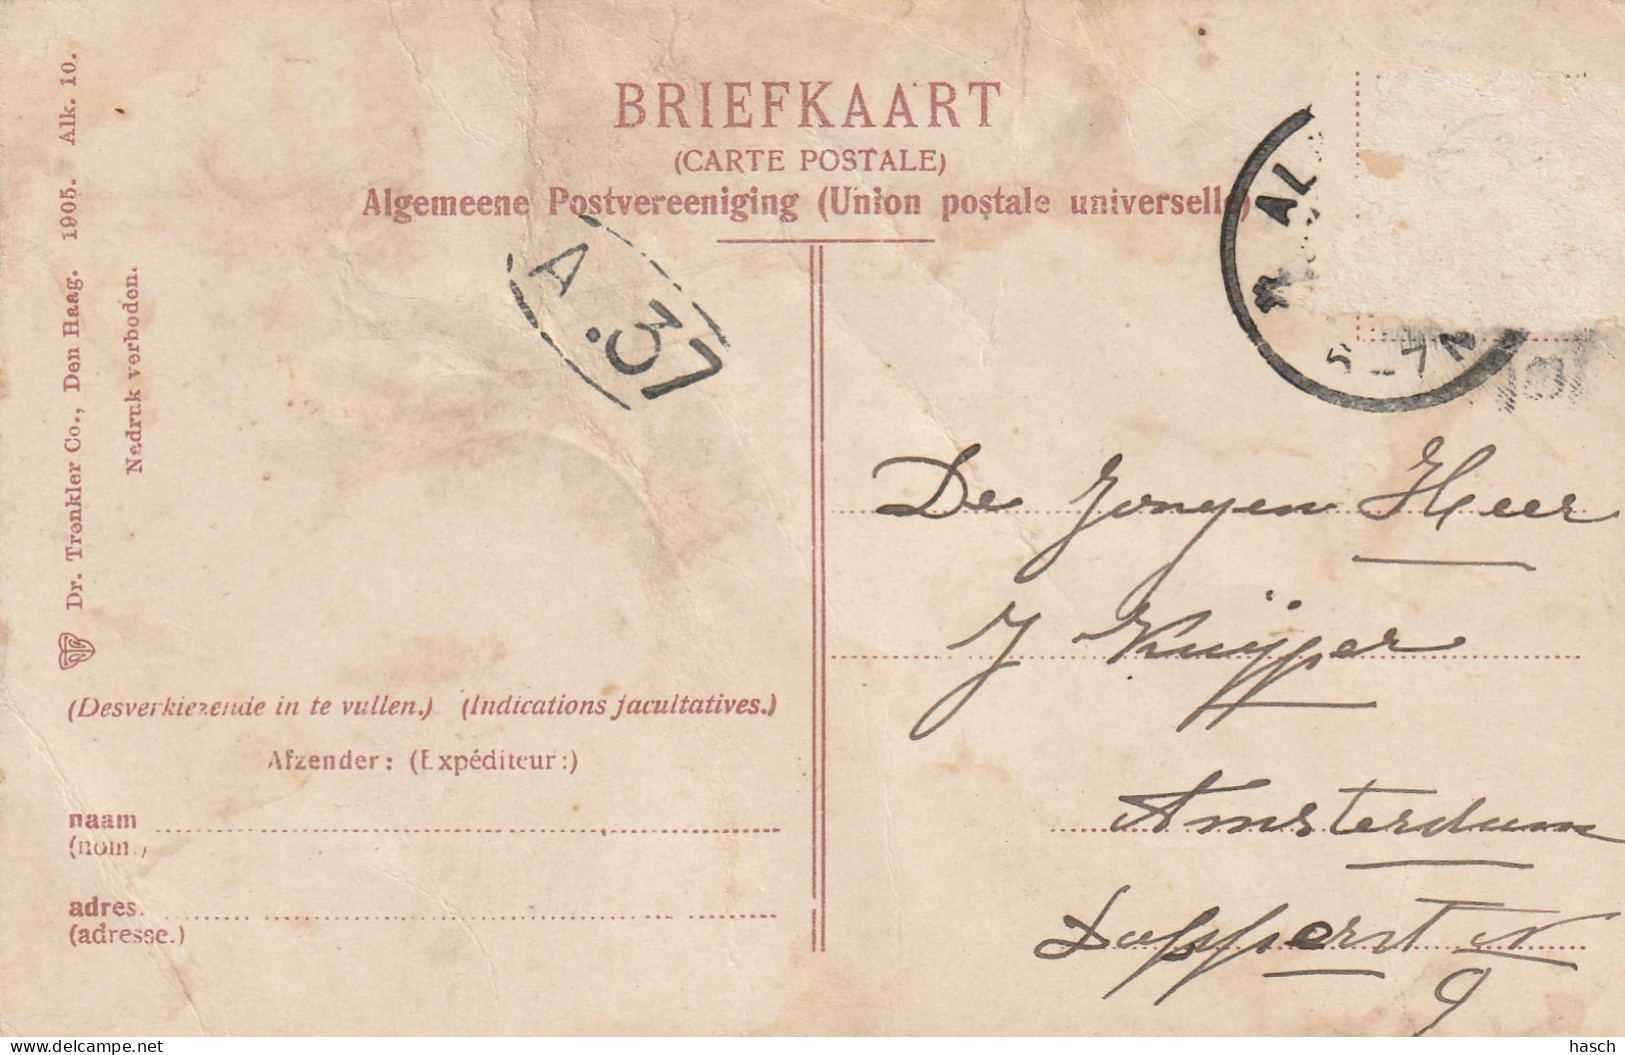 BRIEFKAART
(CARTE POSTALE)
Algemeene Postvereeniging (Union postale universelle)
Dr. Trenkler Co., Den Haag. 1905. Alk. 10.
Nadruk verboden.
A.37
AL
5-7N
De Jongen Heer
J Kuijper
Amsterdam
Dapperst N
9
(Desverkiezende in te vullen.) (Indications facultatives.)
Afzender: (Expéditeur:)
naam
(nom.)
adres.
(adresse.)
hasch
https://www.delcampe.net